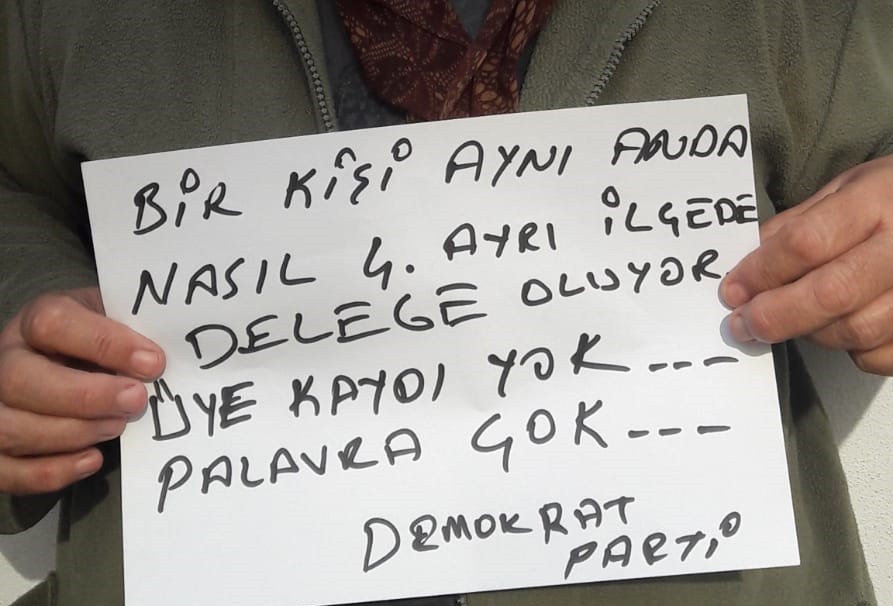 BİR KİŞİ AYNI ANDA
NASIL 4. AYRI İLÇEDE
DELEGE OLUYOR
ÜYE KAYDI YOK---
PALAVRA ÇOK---
DEMOKRAT
PARTİ